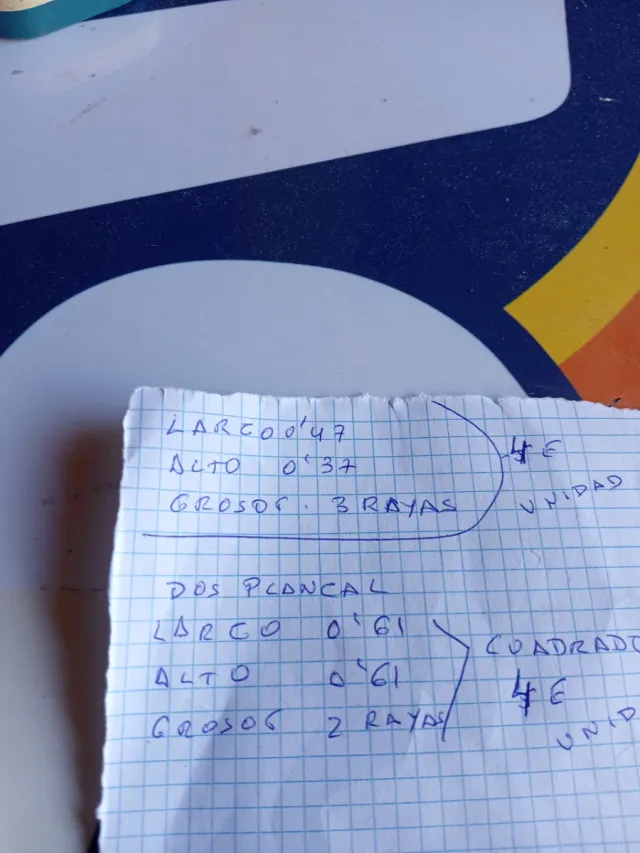 LARGO 0'47
ALTO 0'37
GROSOG. 3 RAYAS
4 €
UNIDAD
DOS PLANCAL
LARGO 0'61
ALTO 0'61
GROSOG 2 RAYAS
CUADRADO
4 €
UNID